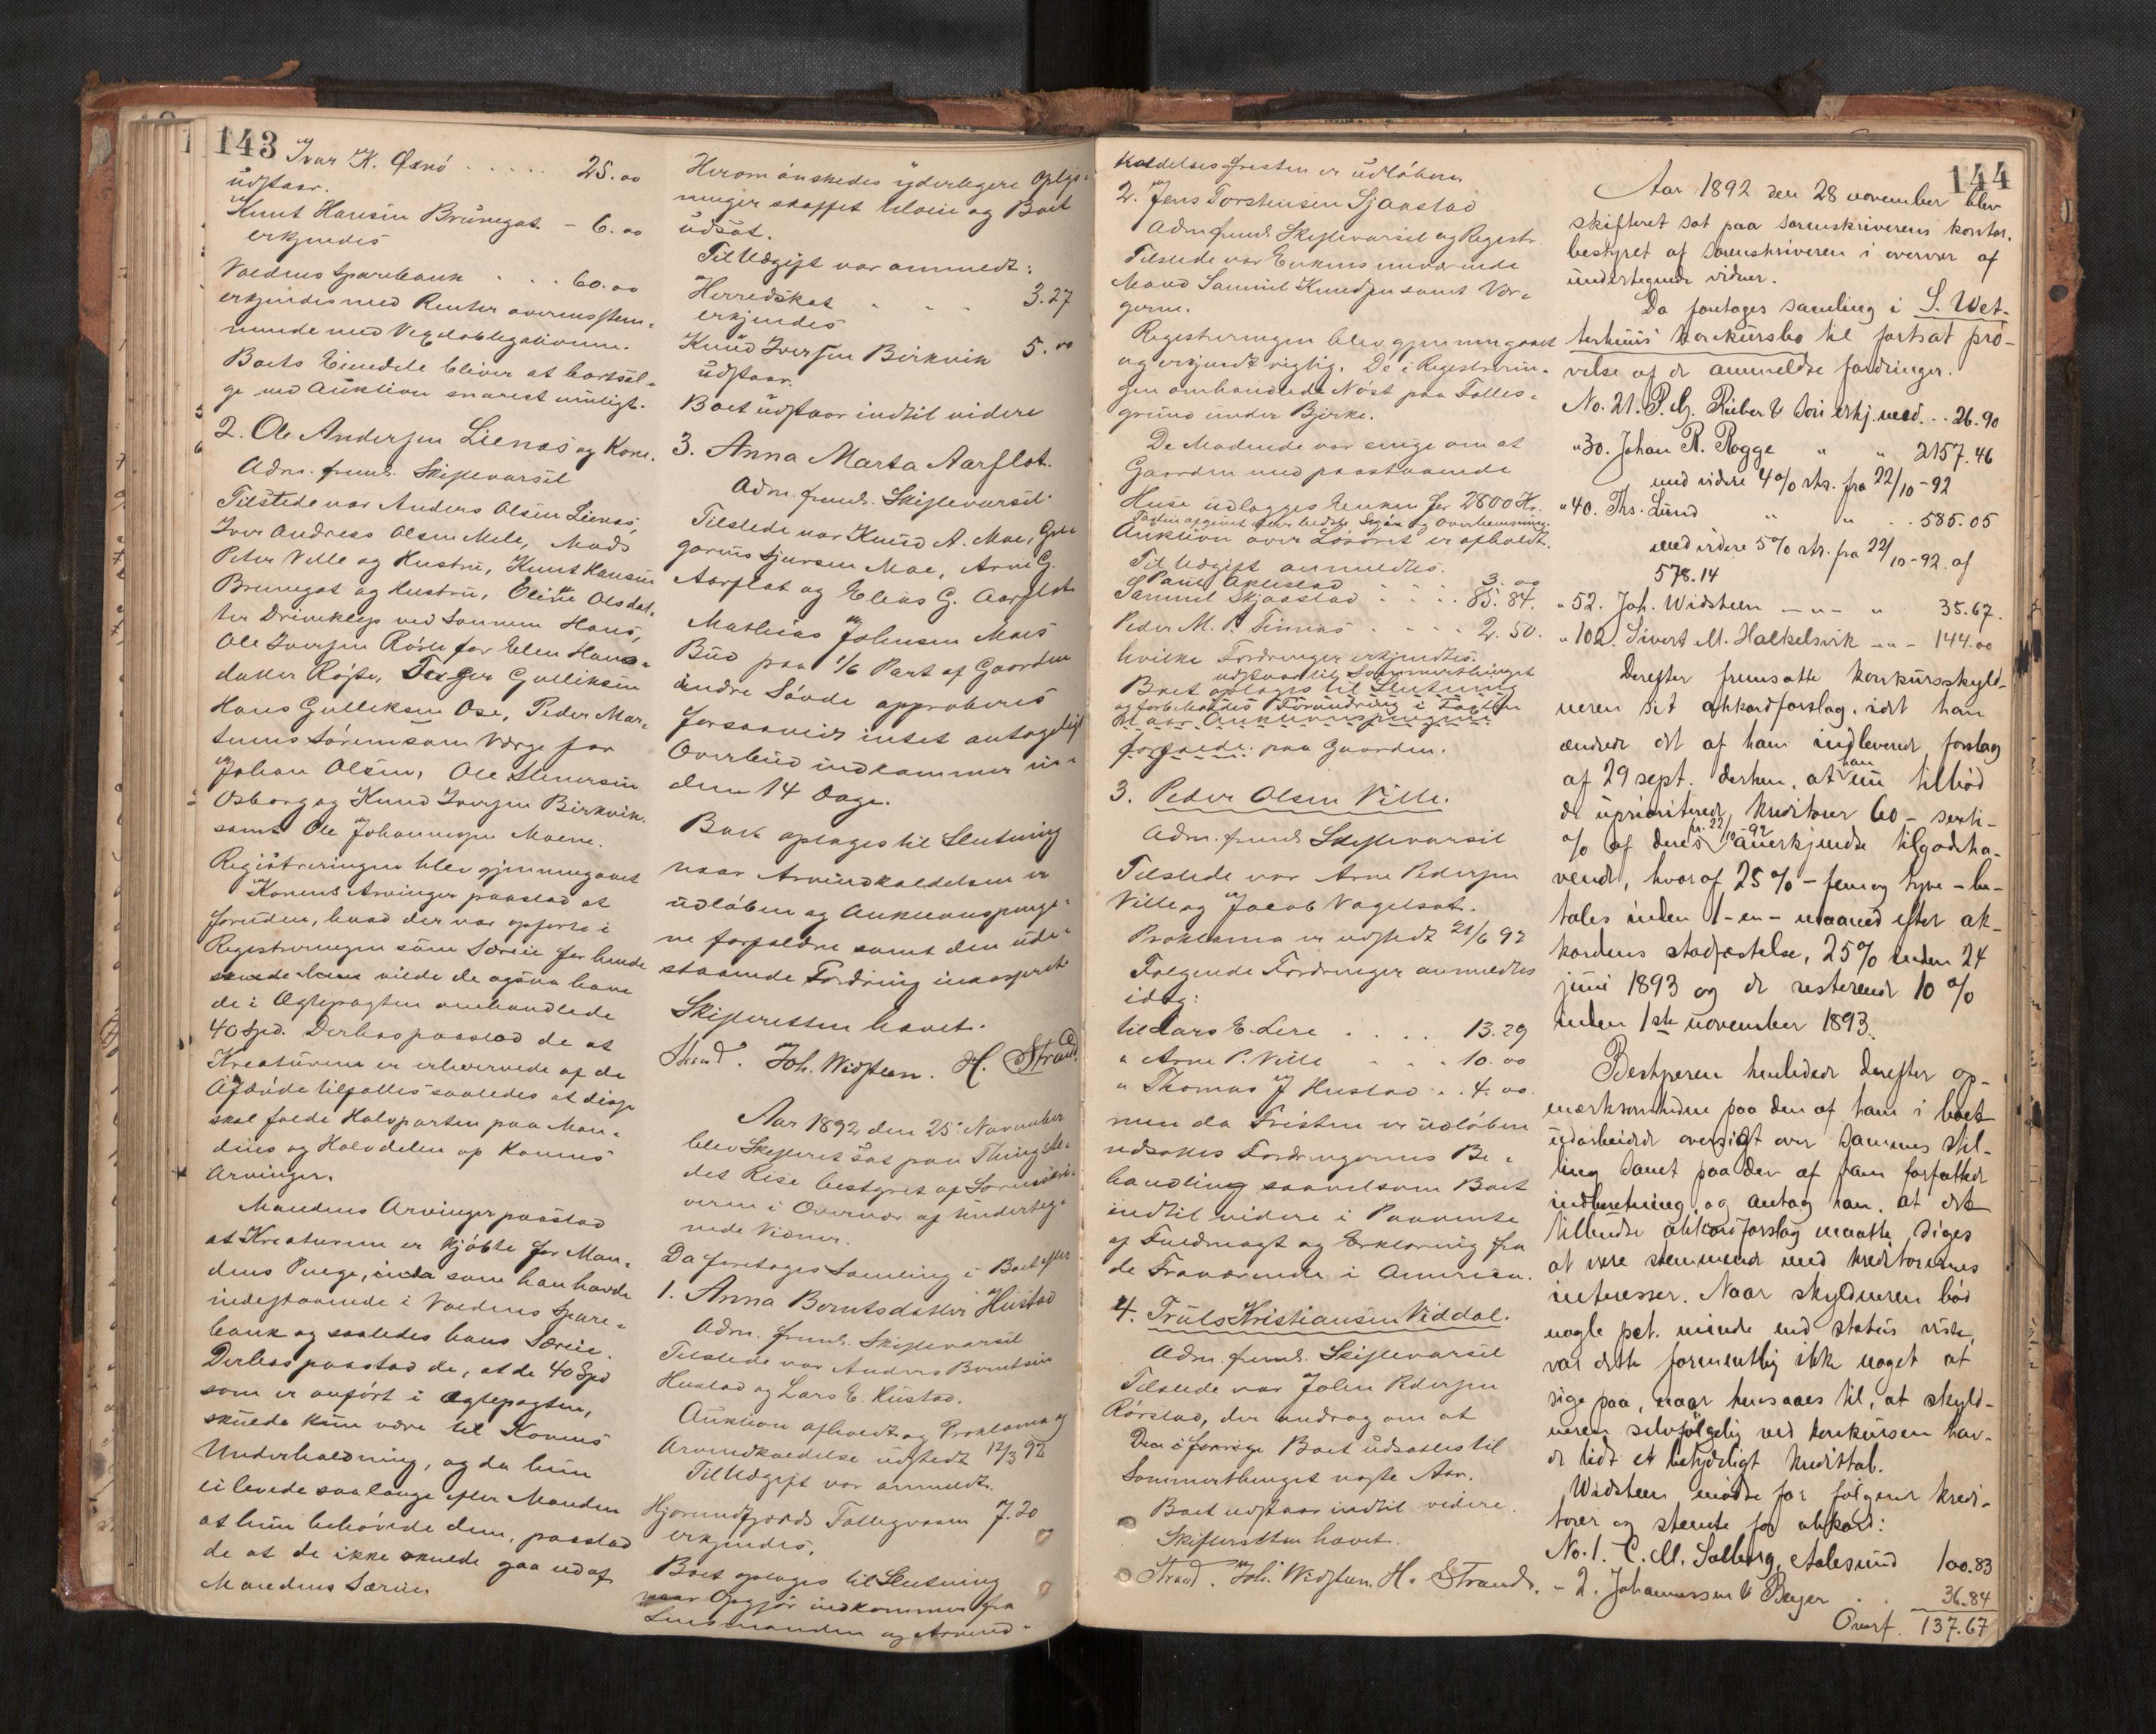 143
Ivar K. Øxnö . . . . . 25.00
udstaar.
Knut Hansen Brunegot - 6.00
erkjendes
Voldens Sparebank . . . 60.00
erkjendes med Renter overensstem-
mende med Vexelobligationen.
Boets Eiendele bliver at bortsæl-
ge ved Auktion snarest muligt.
2. Ole Andersen Lienæs og Kone.
Adm. frmd. Skiftevarsel
Tilstede var Anders Olsen Lienæs,
Iver Andreas Olsen Mele, Mads
Peter Velle og Hustru, Knut Hansen
Brunegot og Hustru, Eline Olsdat-
ter Driveklep ved Sønnen Hans,
Ole Iversen Röste for Elen Hans-
datter Röjse, Gulliksen
Hans Gulliksen Ose, Peder Mar-
Sörem som Værge for
Johan Olsen, Ole
Osborg og Knud Iversen Birkvik
samt Ole Johannesen Moene.
Registreringen blev gjennemgaaet
Konens Arvinger paastod at
foruden, hvad der var opført i
Registreringen som Særeie for hende
vilde de ogsaa have
de i Ægtepagten omhandlede
40 Spd. Derhos paastod de at
Kreaturene er erhvervede af de
Afdöde tilfælles saaledes at disse
skal falde Halvparten paa Man-
dens og Halvdelen op Konens
Arvinger.
Mandens Arvinger paastod
at Kreaturene er kjöbte for Man-
dens Penge, som han havde
indestaaende i Voldens Spare-
bank og saaledes hans Særeie.
Derhos paastod de, at de 40 Spd
som er anført i Ægtepagten,
skulde kun være til Konens
Underholdning, og da hun
ei levede saalænge efter Manden
at hun behövede dem, paastod
de at de ikke skulde gaa ud af
Mandens Særeie
Herom önskedes yderligere Oplys-
ninger skaffet tilveie og Boet
udsat.
Til Udgift var anmeldt:
Herredskat . . . 3.27
erkjendes
Knud Iversen Birkvik 5.00
udstaar.
Boet udstaar indtil videre
3. Anna Marta Aarflot.
Adm. frmd. Skiftevarsel
Tilstede var Knud A. Moe, Gre-
garius Sjursen Moe, Arne G.
Aarflot og Elias G. Aarflot
Mathias Johnsen Moes
Bud paa 1/6 Part af Gaarden
indre Søvde approberes
forsaavidt intet antageligt
Overbud indkommer in-
den 14 Dage.
Boet optages til Slutning
naar Arveindkaldelsen er
udløben og Auktionspenge-
ne forfaldne samt den ude-
staaende Fordring incasseret
Skifteretten hævet.
Strand. Joh. Widsteen. H. Strand
Aar 1892 den 25. November
blev Skifteret sat paa Thingste-
det Rise bestyret af Sorenskri-
veren i Overvær af Undertegnede
nede Vidner.
Da foretages Samling i Boet efter
1. Anna Berntsdatter Hustad
Adm. frmd. Skiftevarsel
Tilstede var Anders Berntsen
Hustad og Lars E. Hustad.
Auktion afholdt og Proklama og
Arveindkaldelse udstedt 12/3 92
Til Udgift var anmeldt.
Hjorundfjords Fattigvæsen 7.20
erkjendes.
Boet optages til Slutning
naar Opgjör indkommer fra
Lensmanden og Arveind-
144
kaldelsesfristen er udløben.
2. Jens Torstensen Sjaastad
Adm. frmd. Skiftevarsel og Registr.
Tilstede var Enkens nuværende
Mand Samuel Knudsen samt Vær-
gerne.
Registreringen blev gjennemgaaet
og erkjendt rigtig. De i Registrerin-
gen omhandlede Nöst paa Fælles-
grund under Bjerke.
De Mødende var enige om at
Gaarden med paastaaende
Huse udlægges Enken for 2800 Kr.
Auktion over Lösöret er afholdt.
Til Udgift anmeldtes.
Paul Aklestad . . . 3.00
Samuel Skjaastad . . . . 85.84.
Peder M. P. Finnes . . . . 2.50.
hvilke Fordringer erkjendtes.
udstaar til Sommerthinget
Boet optages til Slutning
og forbeholdes Forandring i Taxten
naar Auktionspengene
forfalde. paa Gaarden.
3. Peder Olsen Ville.
Adm. frmd. Skiftevarsel
Tilstede var Arne Pedersen
Ville og Jacob Vagelsot.
Proklama er udstedt 21/6 92
Følgende Fordringer anmeldtes
idag:
til Lars E. Lere . . . . 13.29
" Arne P. Ville . . . 10.00
" Thomas J Hustad . . 4.00.
men da Fristen er udløben
udsattes Fordringernes Be-
handling saavelsom Boet
indtil videre i Paavente
af Fuldmagt og Erklæring fra
de Fraværende i Amerika.
4. Truls Kristiansen Viddal.
Adm. frmd. Skiftevarsel
Tilstede var John Pedersen
Rörstad, der androg om at
Boet udsattes til
Sommerthinget næste Aar.
Boet udstaar indtil videre.
Skifteretten hævet.
Strand. Joh. Widsteen. H. Strand.
Aar 1892 den 28 november blev
skifteret sat paa sorenskriverens kontor,
bestyret af sorenskriveren i overvær af
undertegnede vidner.
Da foretages samling i S. Wet-
terhuus' konkursbo til fortsat prö-
velse af de anmeldte fordringer.
No. 21. P. G. Rieber & Sön erkj. med . . 26.90
" 30. Johan R. Rogge " " 2157.46
med videre 4% rtr. fra 22/10-92
" 40. Ths. Lund " " . . 585.05
med videre 5% rtr. fra 22/10-92. af
578.14
" 52. Joh. Widsteen -"- " 35.67.
" 102. Sivert M. Halkelsvik -"- 144.00
Derefter fremsatte konkursskyld-
neren sit akkordforslag, idet han
ændrede det af ham indleverede forslag
af 29 sept. derhen, at han nu tilböd
de uprioriterede kreditorer 60 - sexti-
% af deres pr. 22/10-92 anerkjendte tilgodeha-
vende, hvoraf 25% - fem og tyve - be-
tales inden 1 - en - maaned efter ak-
kordens stadfæstelse, 25% inden 24
juni 1893 og de resterende 10%
inden 1ste november 1893.
Bestyreren henledede derefter op-
mærksomheden paa den af ham i boet
udarbeidede oversigt over sammes stil-
ling samt paa den af ham forfattede
indberetning, og antog han, at det
tilbudte akkordforslag maatte siges
at være stemmende med kreditorernes
interesser. Naar skyldneren böd
nogle pct. mindre end status viste,
var dette formentlig ikke noget at
sige paa, naar hensaaes til, at skyld-
neren selvfölgelig ved konkursen hav-
de lidt et betydeligt kredittab.
Widsteen mödte for fölgende kredi-
torer og stemte for akkord:
No. 1. C. M. Solberg, Aalesund 100.83
- 2. Johannessen & Beyer . . 36.84
Overf. 137.67